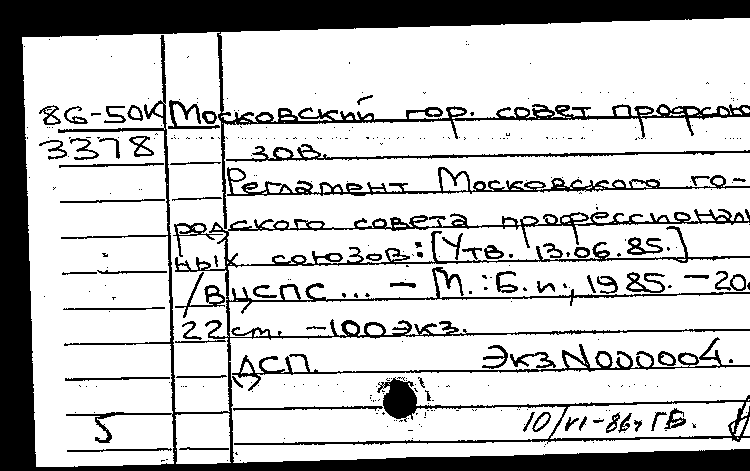 86-50К Московский гор. совет профсою
3378 зов.
Регламент Московского го-
родского совета профессиональ
ных союзов: [Утв. 13.06.85.]
/ВЦСПС ... – М.: Б. и., 1985. – 20
22 см. – 100 экз.
ДСП. Экз. N000004.
5 10/VI-86г ГБ.